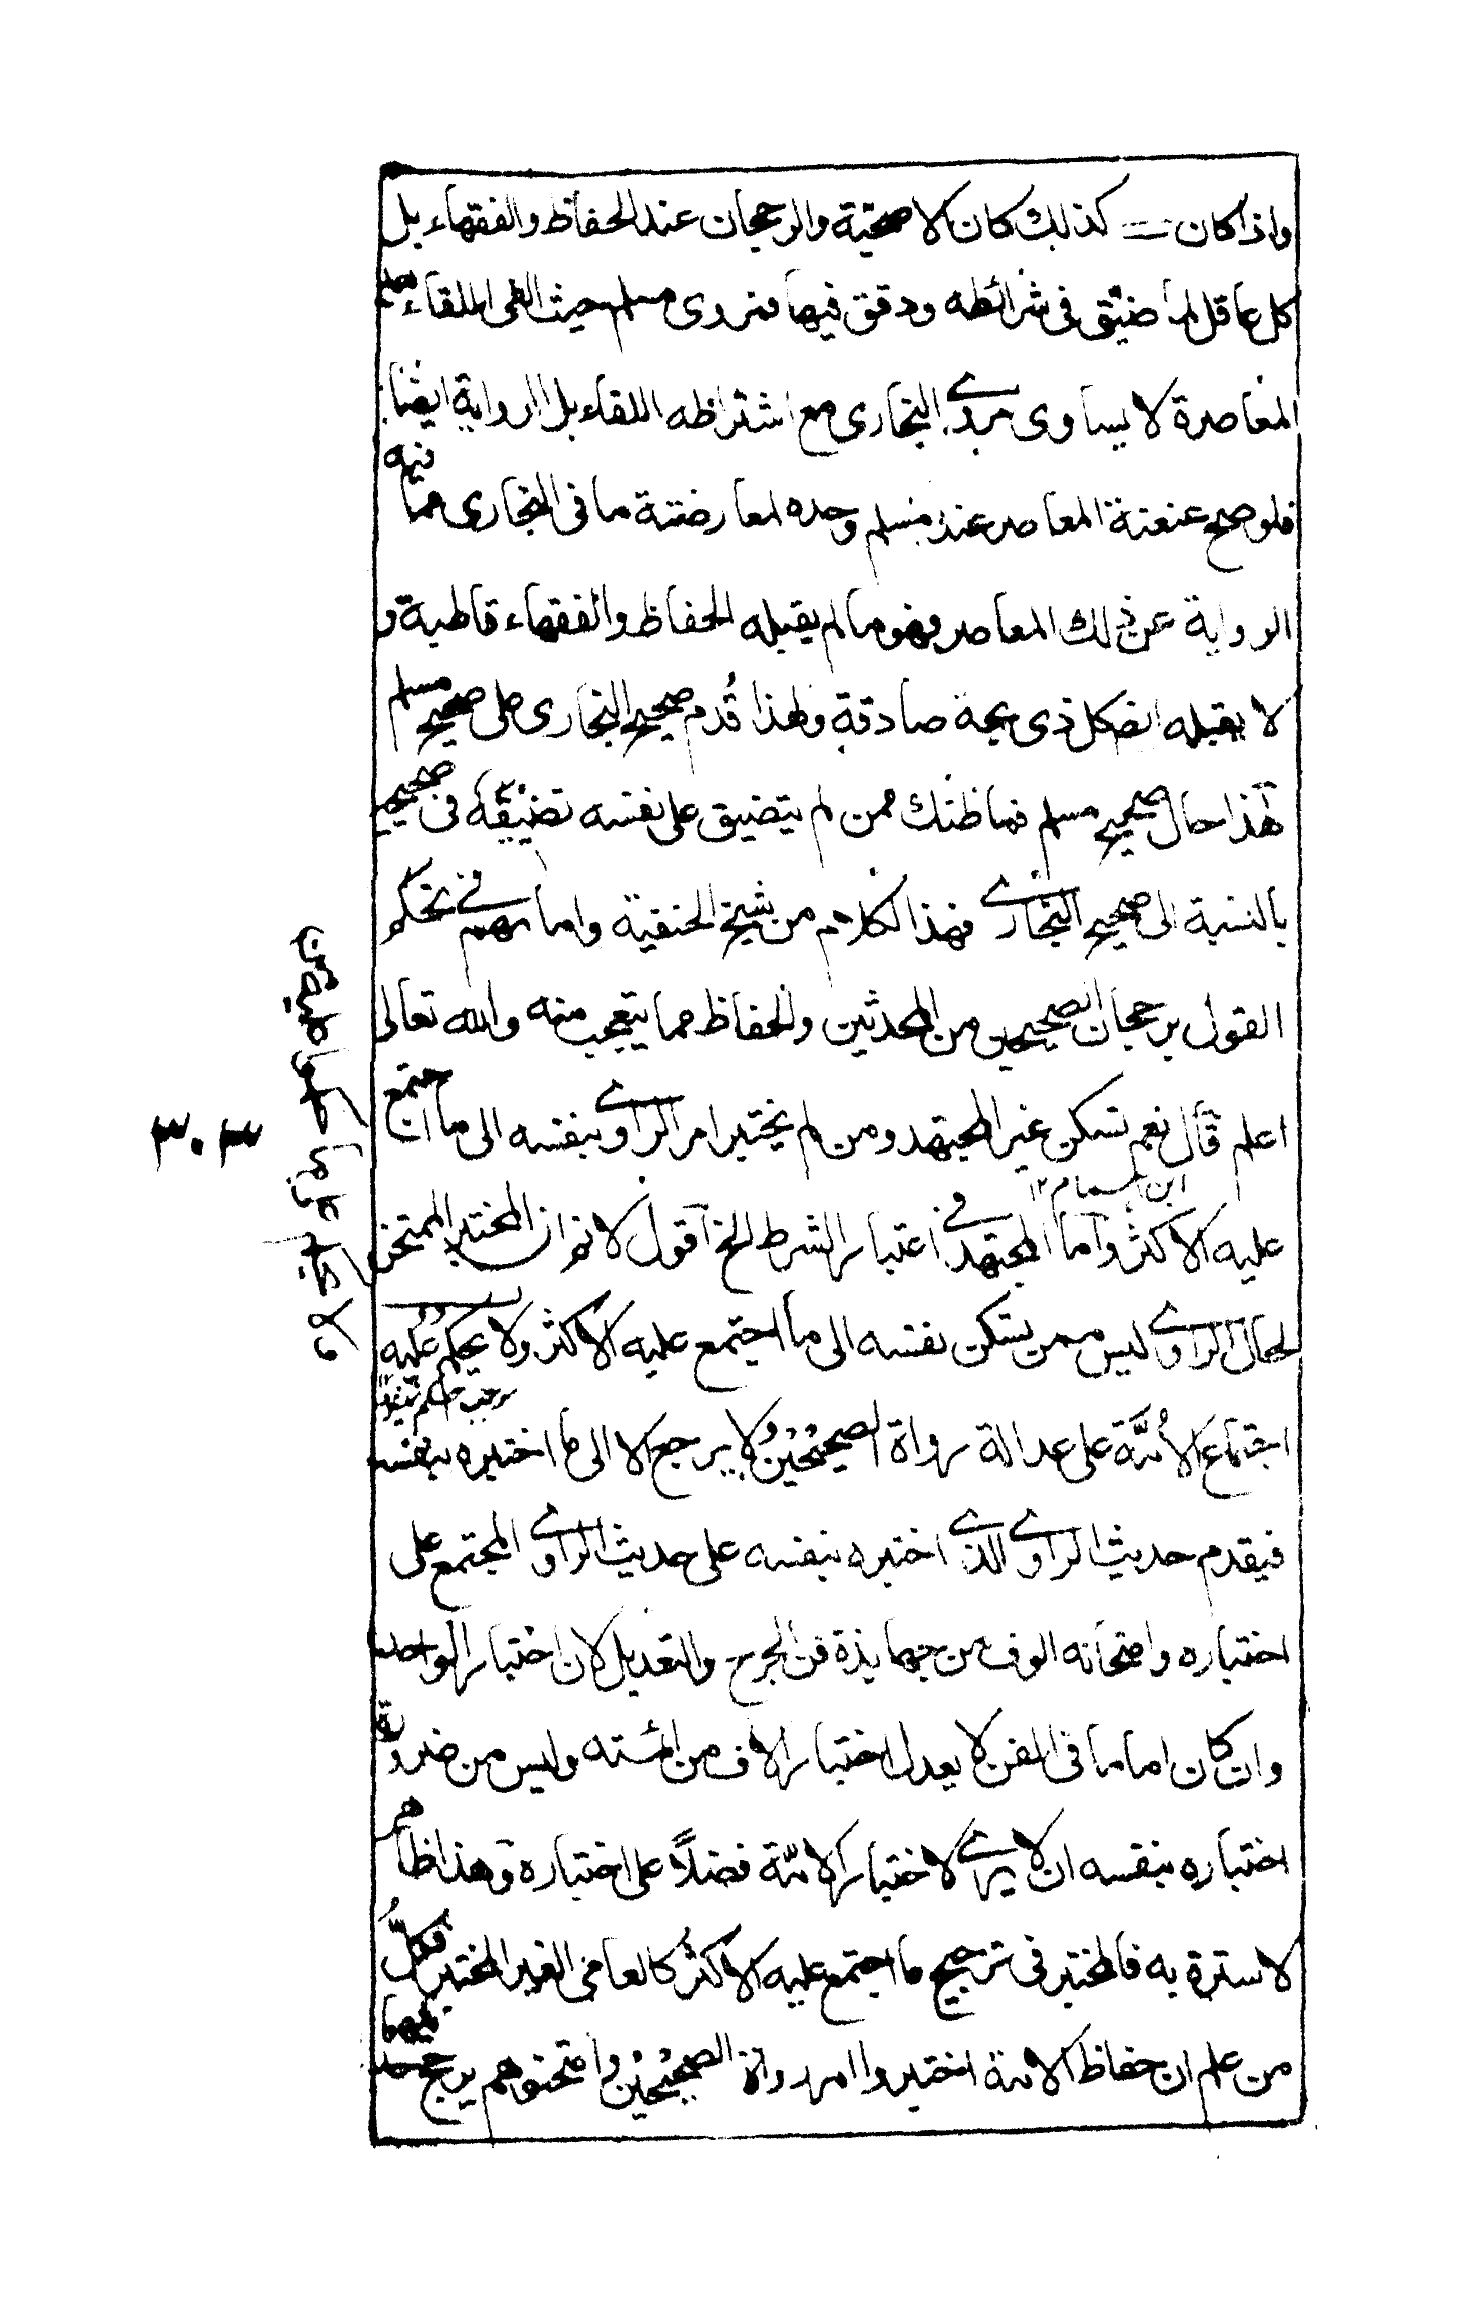 واذا كان كذلك كان الاصحية والرجحان عند الحفاظ والفقهاء بل
كل عاقل لما ضيق في شرائطه ودقق فيها فمروى مسلم حيث القى اللقاء مع
المعاصرة لا يساوى مروى البخارى مع اشتراطه اللقاء بل الرواية ايضا
فلو صح عنعنة المعاصر عند مسلم وحده لمعارضته ما في البخارى مما فيه
الرواية عن ذلك المعاصر فهو ما لم يقبله الحفاظ والفقهاء قاطبة و
لا يقبله ايضا كل ذى صادقة ولهذا قدم صحيح البخارى على صحيح مسلم
هذا حال صحيح مسلم فما ظنك ممن لم يتضيق على نفسه تضييقه في صحيحه
بالنسبة الى صحيح البخارى فهذا الكلام من شيخ الحنفية واما فى تحكم
القول برجحان الصحيحين من المحدثين والحفاظ مما يتعجب منه والله تعالى
اعلم قال نعم تسكن غير المجتهد ومن لم يختبر امر الراوى بنفسه الى ما اجتمع
ابن الهمام ١٢
عليه الاكثر واما المجتهد فى اعتبار الشرط الخ اقول لا نم ان المختبر الممتحن
لحال الراوى ليس ممن يسكن نفسه الى ما اجتمع عليه الاكثر ولا يحكم عليه
اجتماع الائمة على عدالة رواة الصحيحين ولا يرجع الا الى ما اختبره بنفسه
فيقدم حديث الراوى الذى اختبره بنفسه على حديث الراوى المجتمع على
اختباره وامتحانه الوف من جهابذة فن الجرح والتعديل لان اختبار الواحد
وان كان اماما في الفن لا يعدل اختبار الاف من ائمته وليس من ضرورة
اختباره بنفسه ان لا يرى لاختبار الائمة فضلاً على اختباره وهذا ظاهر
لا سترة به فالمختبر في ترجيح ما اجتمع عليه الاكثر كالعامي الغير المختبر فكل
من علم ان حفاظ الائمة اختبروا امر رواة الصحيحين وامتحنوهم يرجح
٣٠٣